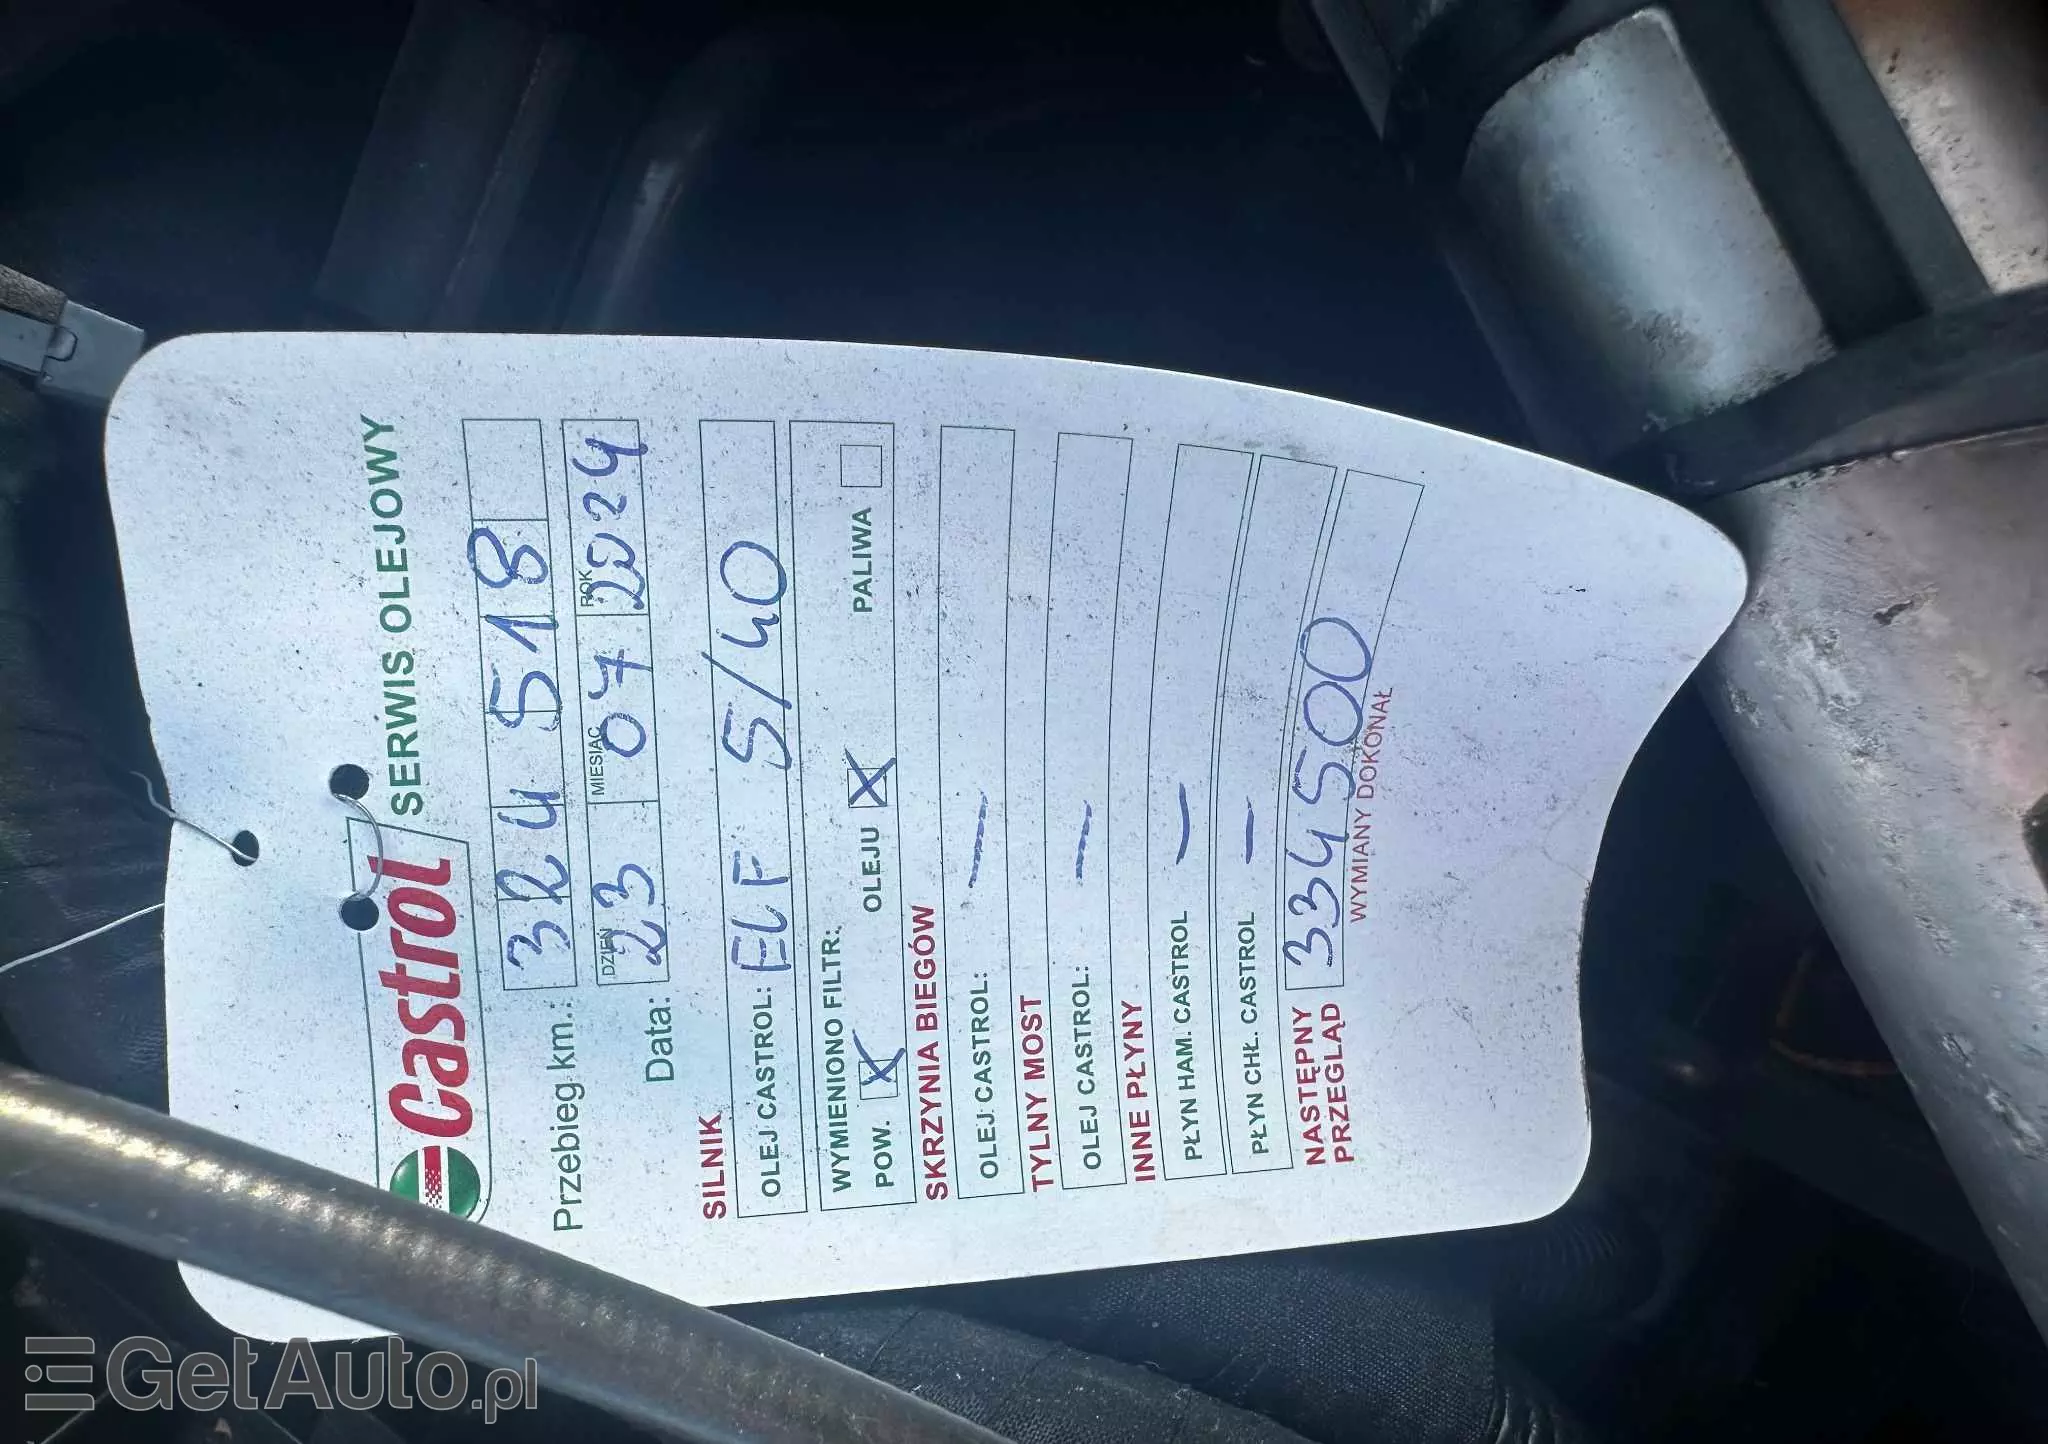 Castrol SERWIS OLEJOWY
Przebieg km.: 324518
DZIEŃ MIESIĄC ROK
Data: 23 07 2024
SILNIK
OLEJ CASTROL: ELF 5/40
WYMIENIONO FILTR:
POW. X OLEJU X PALIWA
SKRZYNIA BIEGÓW
OLEJ CASTROL: —
TYLNY MOST
OLEJ CASTROL: —
INNE PŁYNY
PŁYN HAM. CASTROL —
PŁYN CHŁ. CASTROL —
NASTĘPNY
PRZEGLĄD 334500
WYMIANY DOKONAŁ
GetAuto.pl